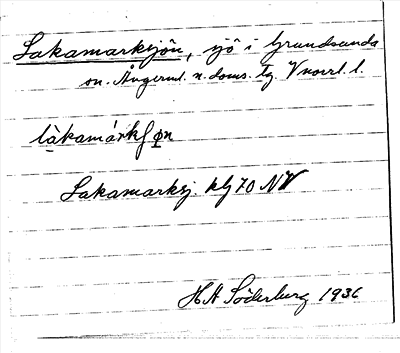 Lakamarksjön, sjö i Grundsunda
sn. Ångerml. n. doms. tg. Vnorrl. l.
làkamárkʃøn
Lakamarksj. kbl 70 NV
H A Söderburg 1936